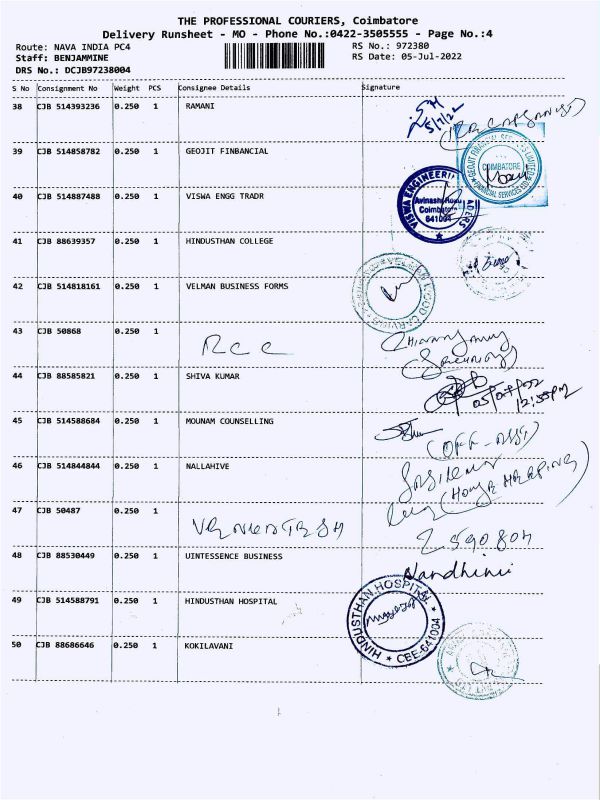 THE PROFESSIONAL COURIERS, Coimbatore
Delivery Runsheet - MO - Phone No.:0422-3505555 - Page No.:4
Route: NAVA INDIA PC4 RS No.: 972380
Staff: BENJAMMINE RS Date: 05-Jul-2022
DRS No.: DCJB97238004
S No Consignment No Weight PCS Consignee Details Signature
38 CJB 514393236 0.250 1 RAMANI
5/7/22
39 CJB 514858782 0.250 1 GEOJIT FINBANCIAL
COIMBATORE
40 CJB 514887488 0.250 1 VISWA ENGG TRADR
VISWA ENGINEERING
Coimbatore
641004
41 CJB 88639357 0.250 1 HINDUSTHAN COLLEGE
42 CJB 514818161 0.250 1 VELMAN BUSINESS FORMS
43 CJB 50868 0.250 1
RCC
44 CJB 88585821 0.250 1 SHIVA KUMAR
05/07/2022
12:55PM
45 CJB 514588684 0.250 1 MOUNAM COUNSELLING
(OFF-ASST)
46 CJB 514844844 0.250 1 NALLAHIVE
47 CJB 50487 0.250 1
VENKATESH
48 CJB 88530449 0.250 1 UINTESSENCE BUSINESS
Nandhini
49 CJB 514588791 0.250 1 HINDUSTHAN HOSPITAL
HINDUSTHAN HOSPITAL
CBE-641004
50 CJB 88686646 0.250 1 KOKILAVANI